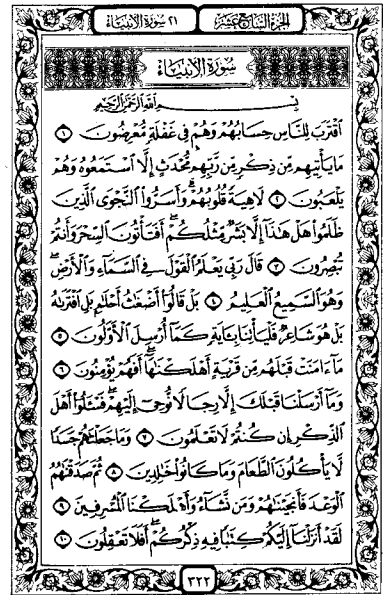 الجزء السابع عشر
٢١ سورة الأنبياء
سورة الأنبياء
بسم الله الرحمن الرحيم
ٱقۡتَرَبَ لِلنَّاسِ حِسَابُهُمۡ وَهُمۡ فِي غَفۡلَةٖ مُّعۡرِضُونَ ١
مَا يَأۡتِيهِم مِّن ذِكۡرٖ مِّن رَّبِّهِم مُّحۡدَثٍ إِلَّا ٱسۡتَمَعُوهُ وَهُمۡ
يَلۡعَبُونَ ٢ لَاهِيَةٗ قُلُوبُهُمۡۗ وَأَسَرُّواْ ٱلنَّجۡوَى ٱلَّذِينَ
ظَلَمُواْ هَلۡ هَٰذَآ إِلَّا بَشَرٞ مِّثۡلُكُمۡۖ أَفَتَأۡتُونَ ٱلسِّحۡرَ وَأَنتُمۡ
تُبۡصِرُونَ ٣ قَالَ رَبِّي يَعۡلَمُ ٱلۡقَوۡلَ فِي ٱلسَّمَآءِ وَٱلۡأَرۡضِۖ
وَهُوَ ٱلسَّمِيعُ ٱلۡعَلِيمُ ٤ بَلۡ قَالُوٓاْ أَضۡغَٰثُ أَحۡلَٰمِۭ بَلِ ٱفۡتَرَىٰهُ
بَلۡ هُوَ شَاعِرٞ فَلۡيَأۡتِنَا بِـَٔايَةٖ كَمَآ أُرۡسِلَ ٱلۡأَوَّلُونَ ٥
مَآ ءَامَنَتۡ قَبۡلَهُم مِّن قَرۡيَةٍ أَهۡلَكۡنَٰهَآۖ أَفَهُمۡ يُؤۡمِنُونَ ٦
وَمَآ أَرۡسَلۡنَا قَبۡلَكَ إِلَّا رِجَالٗا نُّوحِيٓ إِلَيۡهِمۡۖ فَسۡـَٔلُوٓاْ أَهۡلَ
ٱلذِّكۡرِ إِن كُنتُمۡ لَا تَعۡلَمُونَ ٧ وَمَا جَعَلۡنَٰهُمۡ جَسَدٗا
لَّا يَأۡكُلُونَ ٱلطَّعَامَ وَمَا كَانُواْ خَٰلِدِينَ ٨ ثُمَّ صَدَقۡنَٰهُمُ
ٱلۡوَعۡدَ فَأَنجَيۡنَٰهُمۡ وَمَن نَّشَآءُ وَأَهۡلَكۡنَا ٱلۡمُسۡرِفِينَ ٩
لَقَدۡ أَنزَلۡنَآ إِلَيۡكُمۡ كِتَٰبٗا فِيهِ ذِكۡرُكُمۡۚ أَفَلَا تَعۡقِلُونَ ١٠
٣٢٢